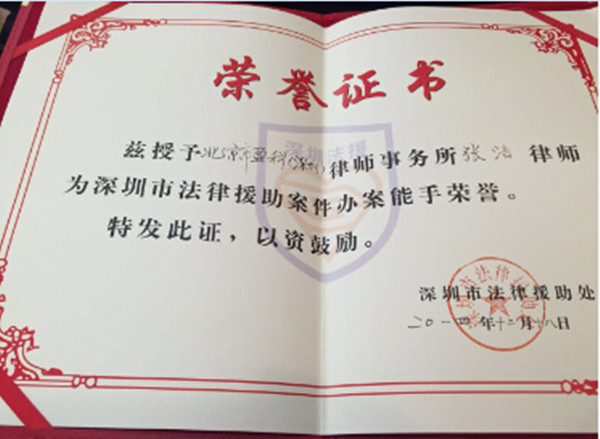 荣誉证书
深圳法援
兹授予北京市盈科(深圳)律师事务所张洁律师
为深圳市法律援助案件办案能手荣誉。
特发此证，以资鼓励。
深圳市法律援助处
二〇一四年十二月十八日